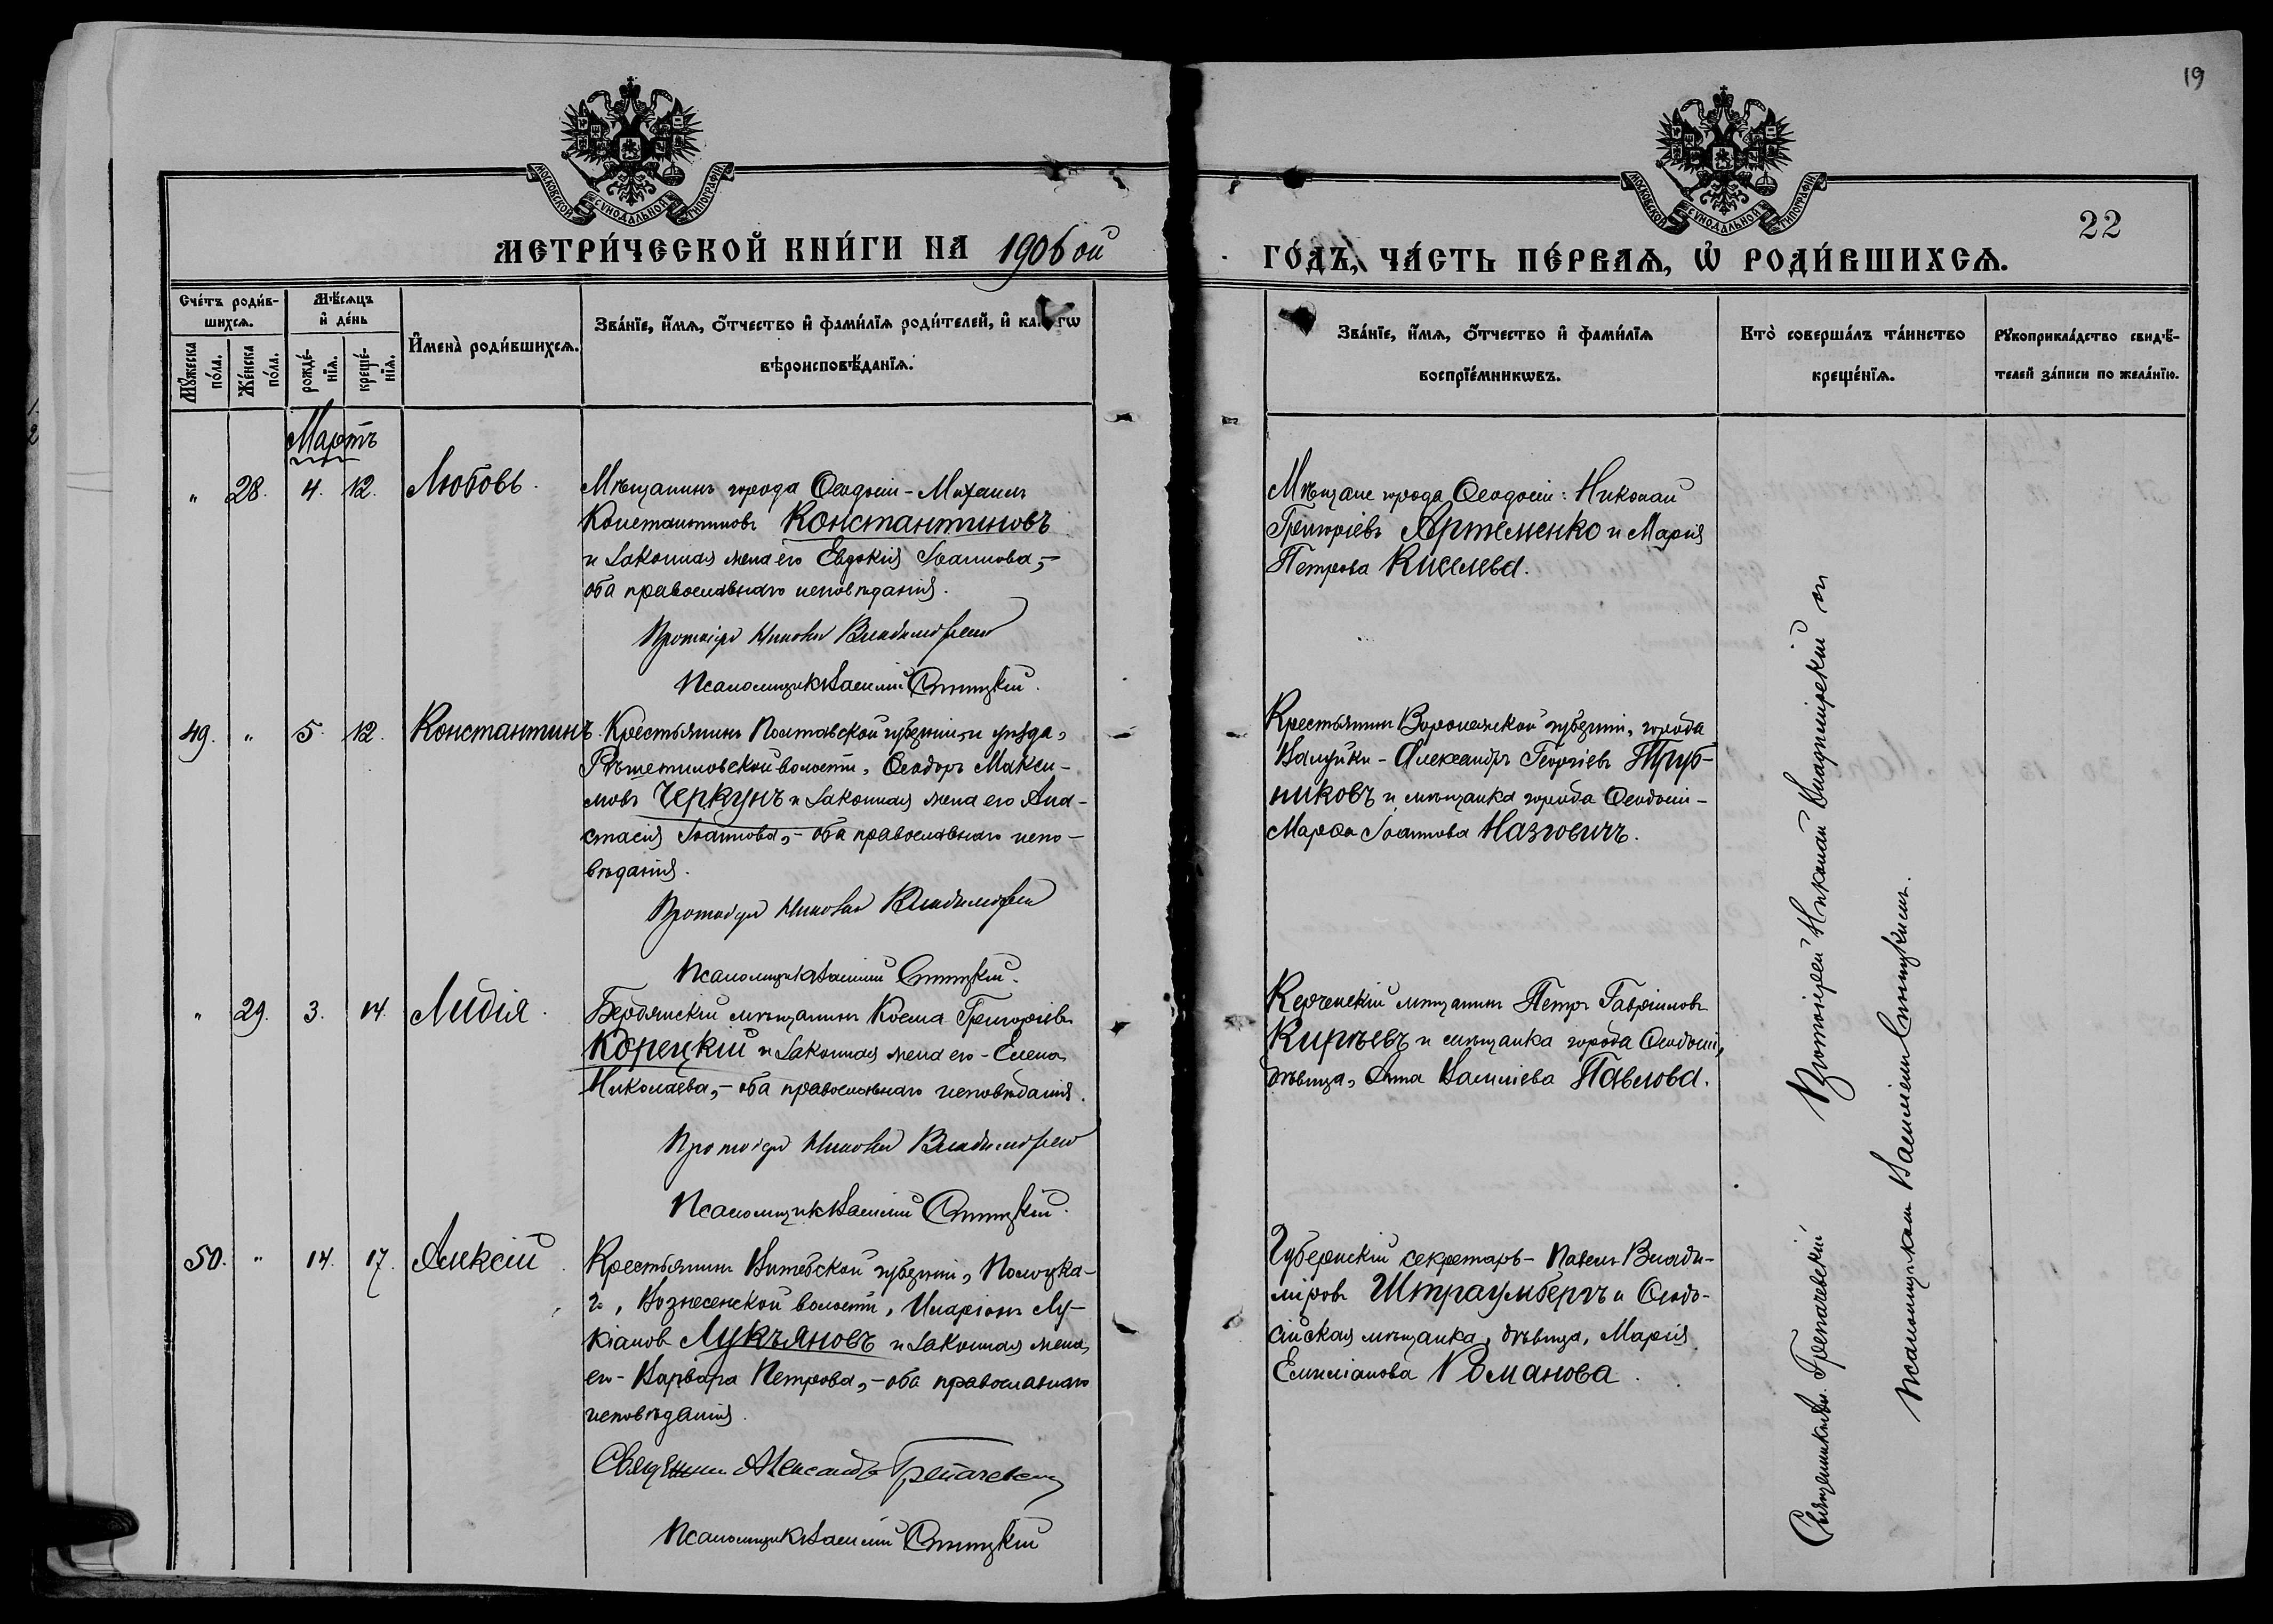 19
МОСКОВСКОЙ СѴНОДАЛЬНОЙ ТИПОГРАФІИ
МОСКОВСКОЙ СѴНОДАЛЬНОЙ ТИПОГРАФІИ
22
МЕТРИ́ЧЕСКОЙ КНИ́ГИ НА 1906 ой
ГО́ДЪ, ЧА́СТЬ ПЕ́РВАѦ, Ѡ҆ РОДИ́ВШИХСѦ.
Сче́тъ роди́в-
шихсѧ.
Мꙋ́жеска по́ла.
Же́нска по́ла.
Мѣ́сѧцъ и҆ де́нь
рожде́-нїѧ.
креще́-нїѧ.
И҆мена̀ роди́вшихсѧ.
Зва́нїе, и҆́мѧ, ѻ҆́тчество и҆ фами́лїѧ роди́телей, и҆ ка гѡ
вѣроисповѣ́данїѧ.
Зва́нїе, и҆́мѧ, ѻ҆́тчество и҆ фами́лїѧ
воспрїе́мникѡвъ.
Кто̀ соверша́лъ та́инство
креще́нїѧ.
Рꙋкоприкла́дство свидѣ́-
телей за́писи по жела́нїю.
Мартъ
" 28. 4. 12. Любовь.
Мѣщанинъ города Ѳеодосіи - Михаилъ
Константиновъ Константиновъ
и законная жена его Евдокія Іоаннова, -
оба православнаго исповѣданія.
Протоіерей Николай Владимірскій
Псаломщикъ Василій Стицкій.
Мѣщане города Ѳеодосіи: Николай
Григоріевъ Артеменко и Марія
Петрова Киселева.
49. " 5. 12. Константинъ.
Крестьянинъ Полтавской губерніи и уѣзда,
Рѣшетиловской волости, Ѳеодоръ Макси-
мовъ Черкунъ и законная жена его Ана-
стасія Іоаннова, - оба православнаго испо-
вѣданія.
Протоіерей Николай Владимірскій
Псаломщикъ Василій Стицкій.
Крестьянинъ Воронежской губерніи, города
Валуйки - Александръ Георгіевъ Труб-
никовъ и мѣщанка города Ѳеодосіи -
Марѳа Іоаннова Назговичъ.
" 29. 3. 14. Лидія.
Бердянскій мѣщанинъ Косма Григоріевъ
Корецкій и законная жена его - Елена
Николаева, - оба православнаго исповѣданія.
Протоіерей Николай Владимірскій
Псаломщикъ Василій Стицкій.
Керченскій мѣщанинъ Петръ Гавріиловъ
Кирѣевъ и мѣщанка города Ѳеодосіи,
дѣвица, Анна Василіева Павлова.
50. " 14. 17. Алексій.
Крестьянинъ Витебской губерніи, Полоцка-
го, Вознесенской волости, Иларіонъ Лу-
кіановъ Лукъяновъ и законная жена
его - Варвара Петрова, - оба православнаго
исповѣданія.
Священникъ Александръ Грепачевскій
Псаломщикъ Василій Стицкій
Губернскій секретарь - Павелъ Влади-
міровъ Штраумбергъ и Ѳеодо-
сійская мѣщанка, дѣвица, Марія
Емиліанова Романова.
Протоіерей Николай Владимірскій съ
Священникъ Грепачевскій
псаломщикомъ Василіемъ Стицкимъ.